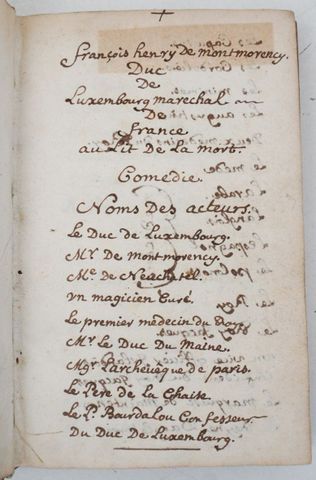 françois henry De montmorency.
Duc
De
Luxembourg marechal
De
france
au Lit De La mort.
Comedie.
Noms Des acteurs.
Le Duc De Luxembourg.
Mr. De montmorency.
Me. De Neuchatel.
vn magicien Curé.
Le premier medecin du Roy.
Mr. Le Duc Du Maine.
Mgr. Larcheueque de paris.
Le Pere De la Chaise.
Le P. Bourdalou Confesseur
Du Duc De Luxembourg.